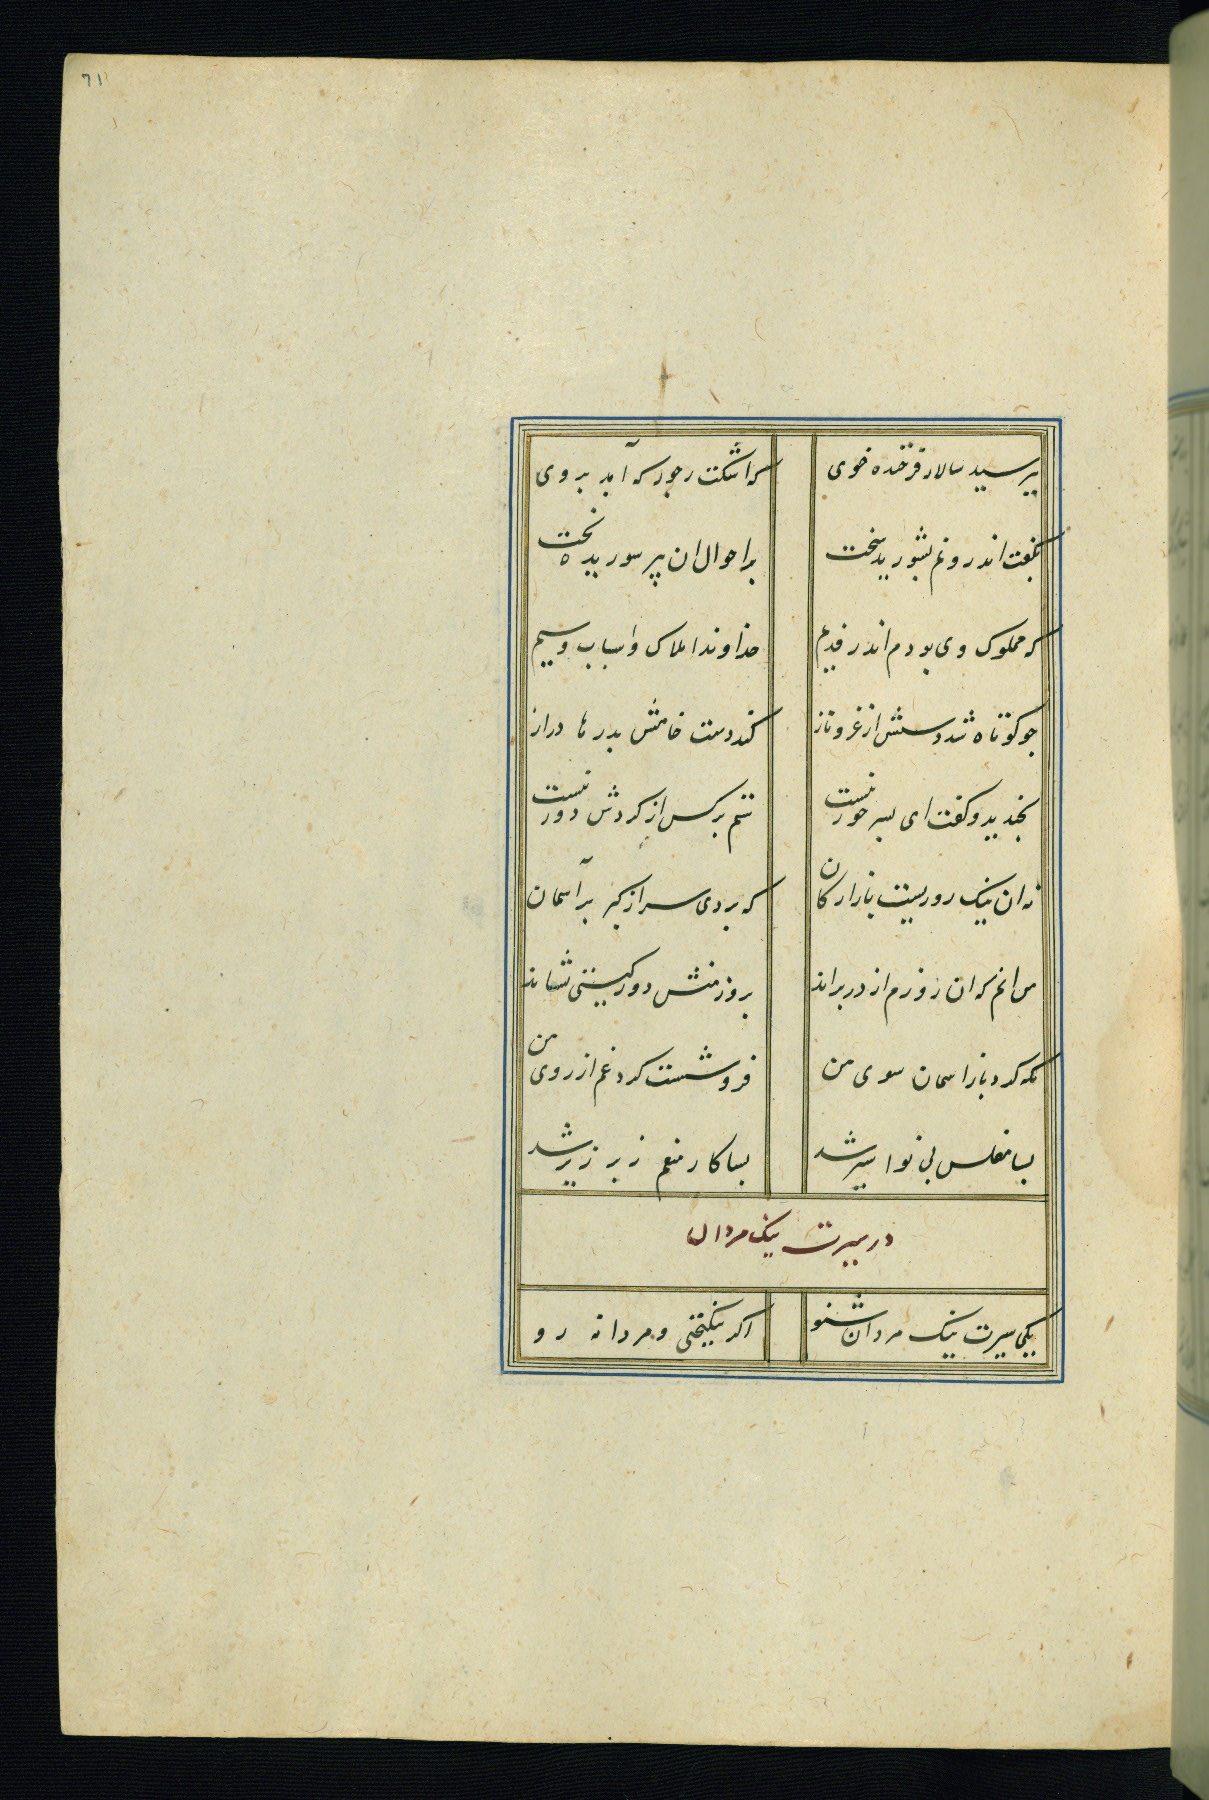 71
بپرسید سالار فرخنده خوی که اشکت ز جور که آمد بروی
بگفت اندرونم بشورید سخت بر احوال ان پیر سوریده بخت
که مملوک وی بودم اندر قدیم خداوند املاک و اسباب و سیم
جو کوتاه شد دستش از عز و ناز کند دست خامش بدرها دراز
بخندید و کفت ای پسر جور نیست ستم بر کس از کردش دور نیست
نه ان نیک روزیست بازارکان که بردی سر از کبر بر آسمان
من انم که ان روزم از در براند بروز منش دور کیتی نشاند
نکه کرد باز اسمان سوی من فرو شست کرد غم از روی من
بسا مفلس بی نوا سیر شد بسا کار منعم زبر زیر شد
در سیرت نیک مردان
یکی سیرت نیک مردان شنو اکر نیکبختی و مردانه رو